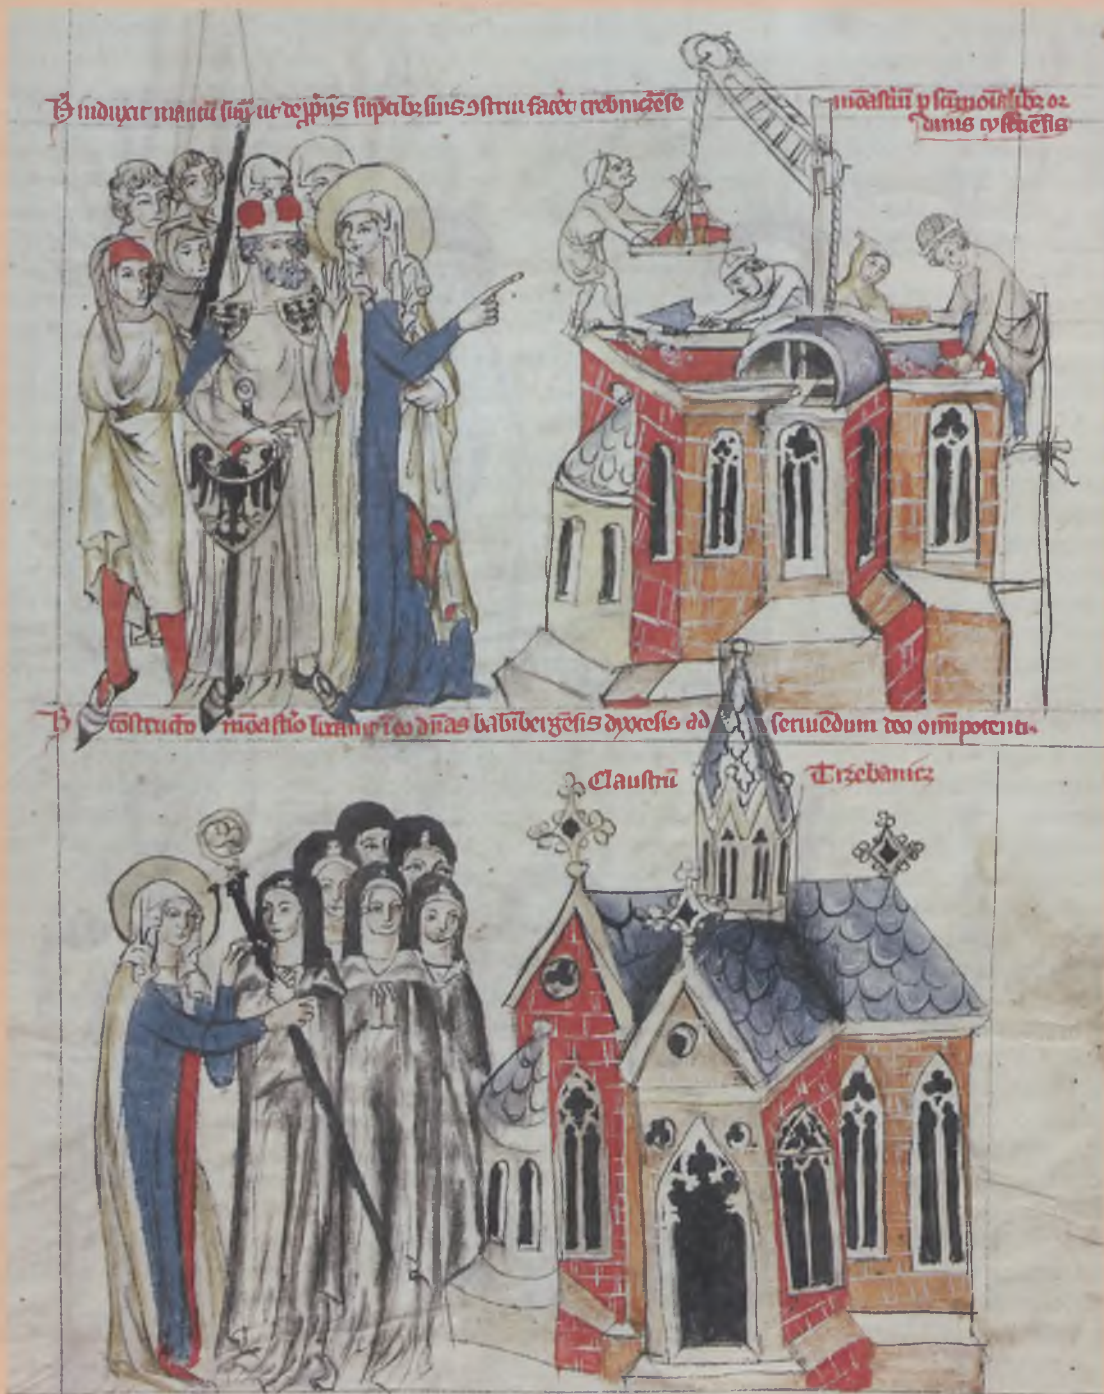 H̄ induxit maritū suū ut de ꝓprijs sūptibꝫ suis ꝯstrui facēt trebnicēse
monastiū p scīmonialibꝫ or
dinis cystciēsis
H̄ cōstructo monastio locauit ī eo dn̄as babībergēsis dyocesis ad seruiēdum deo omīpotenti.
Claustrū Trzebanicz